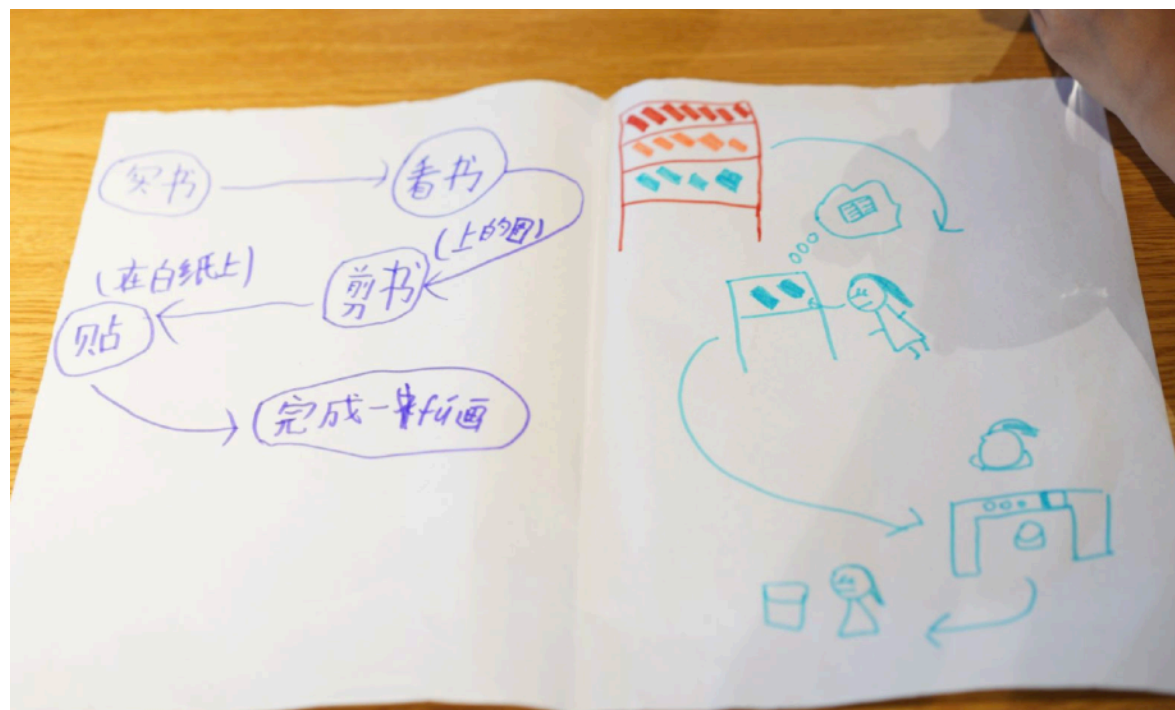 买书
看书
(上的图)
剪书
(在白纸上)
贴
完成一fú画